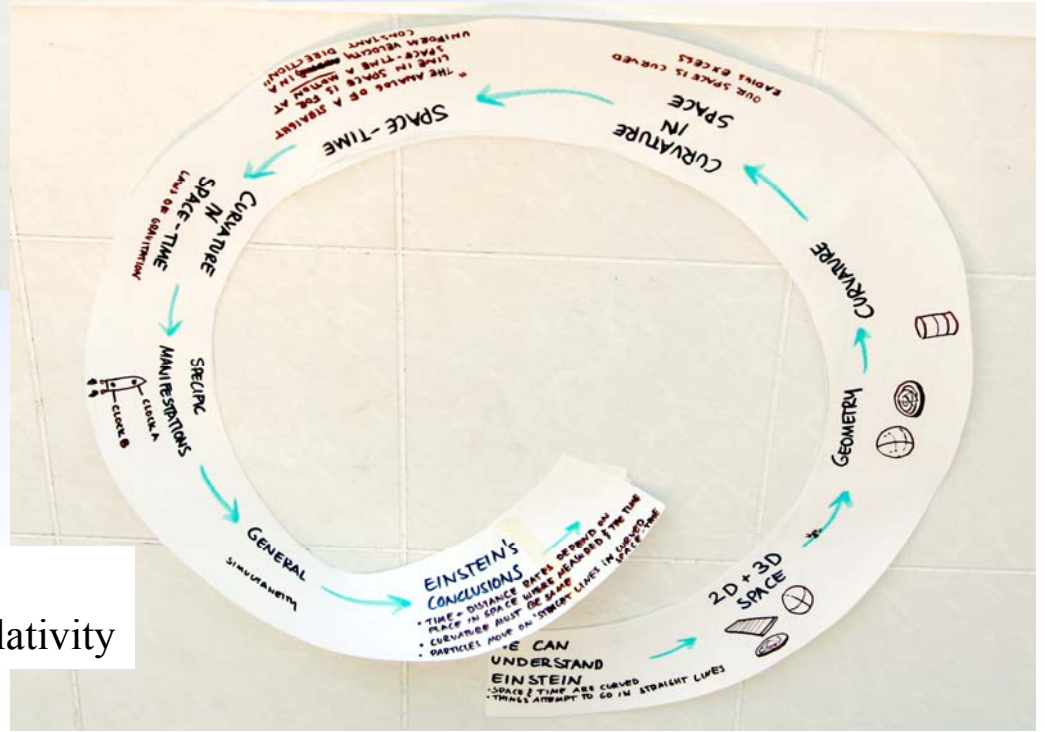 WE CAN
UNDERSTAND
EINSTEIN
· SPACE & TIME ARE CURVED
· THINGS ATTEMPT TO GO IN STRAIGHT LINES
2D + 3D
SPACE
GEOMETRY
CURVATURE
CURVATURE
IN
SPACE
OUR SPACE IS CURVED
RADIUS EXCESS
SPACE-TIME
"THE ANALOG OF A STRAIGHT
LINE IN SPACE IS FOR
SPACE-TIME A MOTION AT
UNIFORM VELOCITY IN A
CONSTANT DIRECTION"
CURVATURE
IN
SPACE-TIME
LAWS OF GRAVITATION
SPECIFIC
MANIFESTATIONS
CLOCK A
CLOCK B
GENERAL
SIMULTANEITY
EINSTEIN'S
CONCLUSIONS
· TIME + DISTANCE RATES DEPEND ON
PLACE IN SPACE WHERE MEASURED & THE TIME
· CURVATURE MUST BE SAME
· PARTICLES MOVE ON "STRAIGHT LINES IN CURVED
SPACE-TIME
lativity